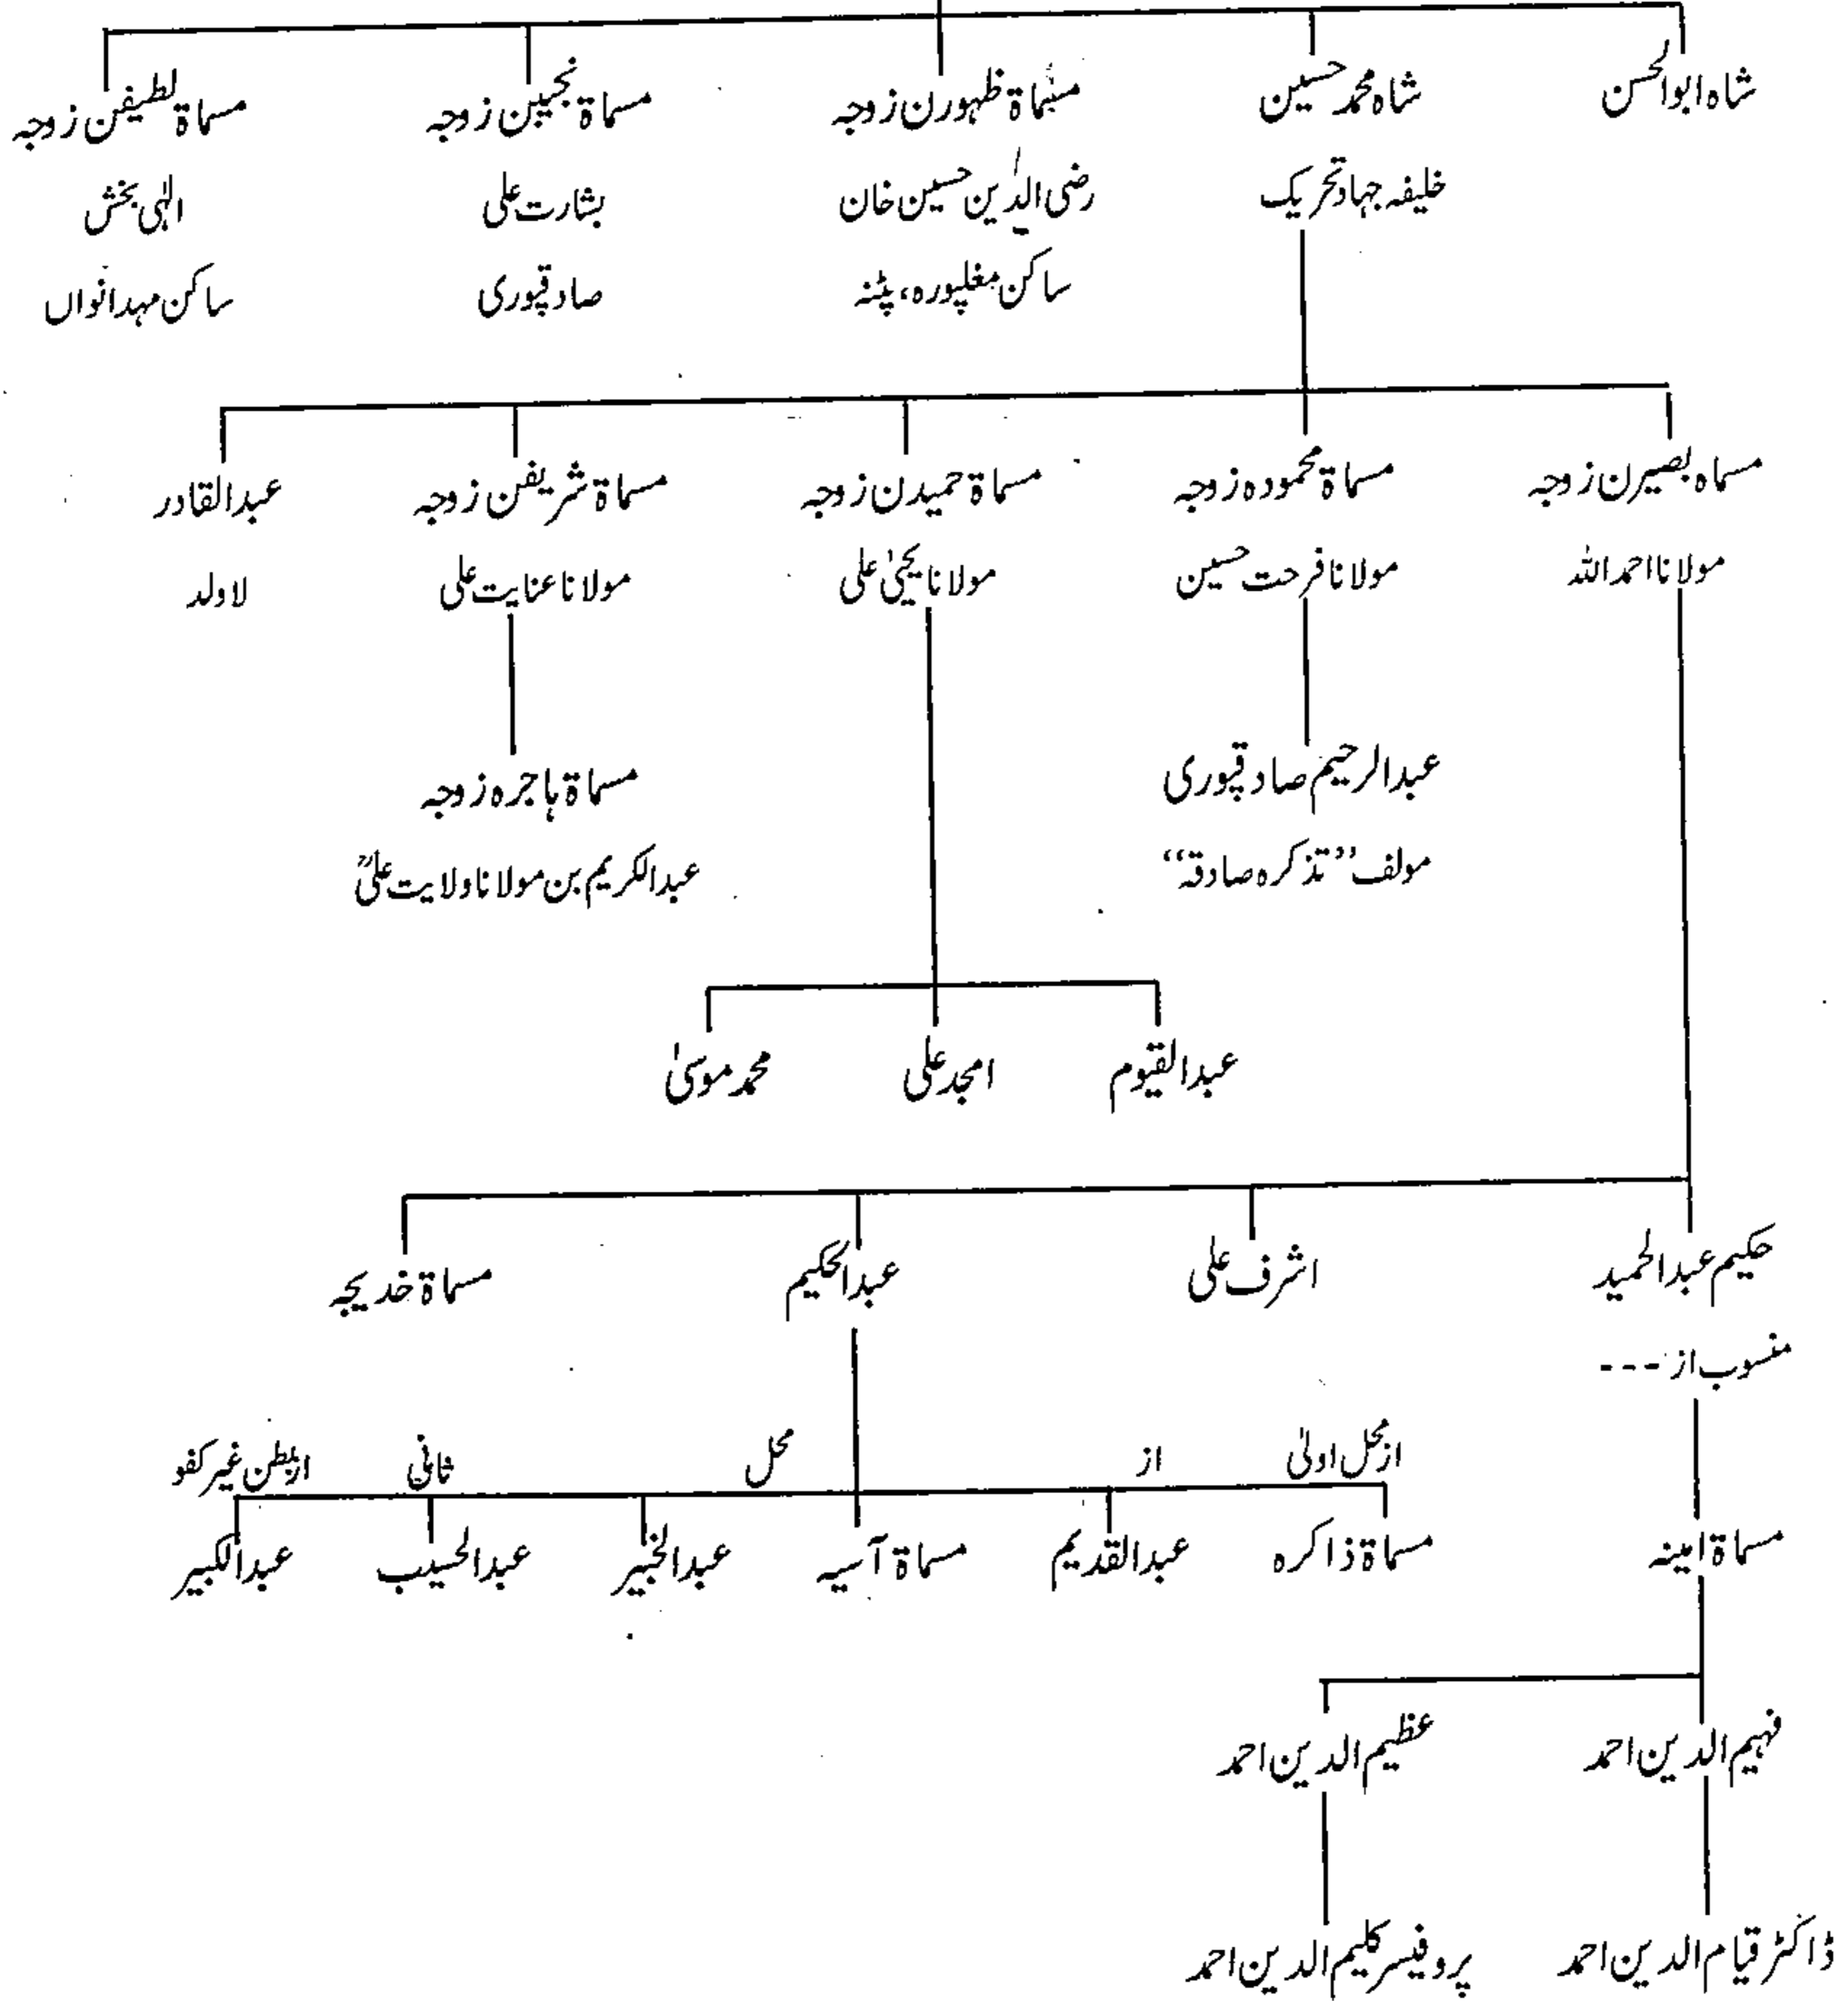 شاہ ابوالحسن
شاہ محمد حسین
خلیفہ جہاد تحریک
مسماۃ ظہورن زوجہ
رضی الدین حسین خان
ساکن مغلپورہ، پٹنہ
مسماۃ نجیبن زوجہ
بشارت علی
صادقپوری
مسماۃ لطیفن زوجہ
الٰہی بخش
ساکن مہدانواں
مسماہ بصیرن زوجہ
مولانا احمد اللہ
مسماۃ محمودہ زوجہ
مولانا فرحت حسین
مسماۃ حمیدن زوجہ
مولانا یحییٰ علی
مسماۃ شریفن زوجہ
مولانا عنایت علی
عبدالقادر
لاولد
عبدالرحیم صادقپوری
مولف ’’تذکرہ صادقہ‘‘
مسماۃ ہاجرہ زوجہ
عبدالکریم بن مولانا ولایت علیؒ
عبدالقیوم
امجد علی
محمد موسیٰ
حکیم عبدالحمید
منسوب از ---
اشرف علی
عبدالحکیم
مسماۃ خدیجہ
از محل اولیٰ
از
محل
ثانی
از بطن غیر کفو
مسماۃ امینہ
مسماۃ ذاکرہ
عبدالقدیم
مسماۃ آسیہ
عبدالخبیر
عبدالحسیب
عبدالکبیر
فہیم الدین احمد
عظیم الدین احمد
ڈاکٹر قیام الدین احمد
پروفیسر کلیم الدین احمد